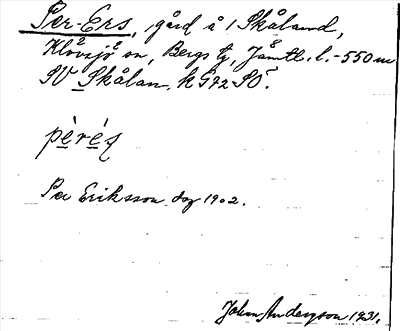 Per-Ers, gård å 1 Skåland,
Klövsjö sn, Bergs tg, Jämtl. l. -550 m
SV Skålan. k G72 SO.
pèrés
Per Eriksson dog 1902.
Johan Anderzon 1931.